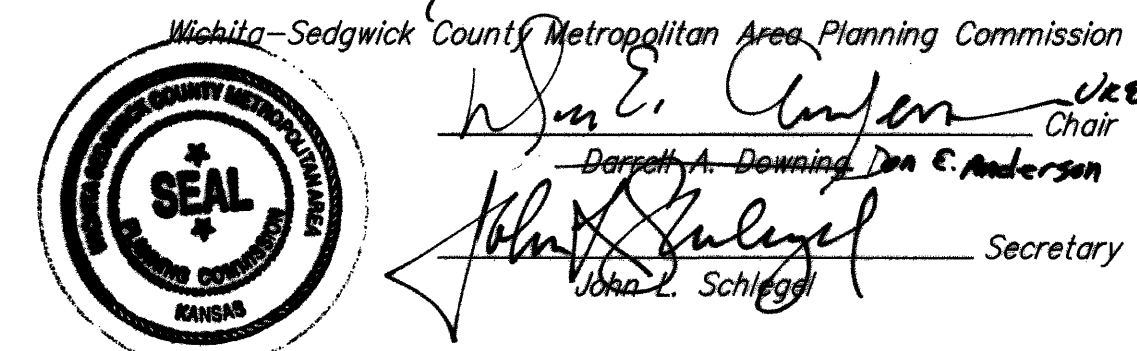 Wichita-Sedgwick County Metropolitan Area Planning Commission
Don E. Anderson
Chair
Darrell A. Downing Don E. Anderson
John L. Schlegel
Secretary
John L. Schlegel
WICHITA-SEDGWICK COUNTY METROPOLITAN AREA
SEAL
PLANNING COMMISSION
KANSAS